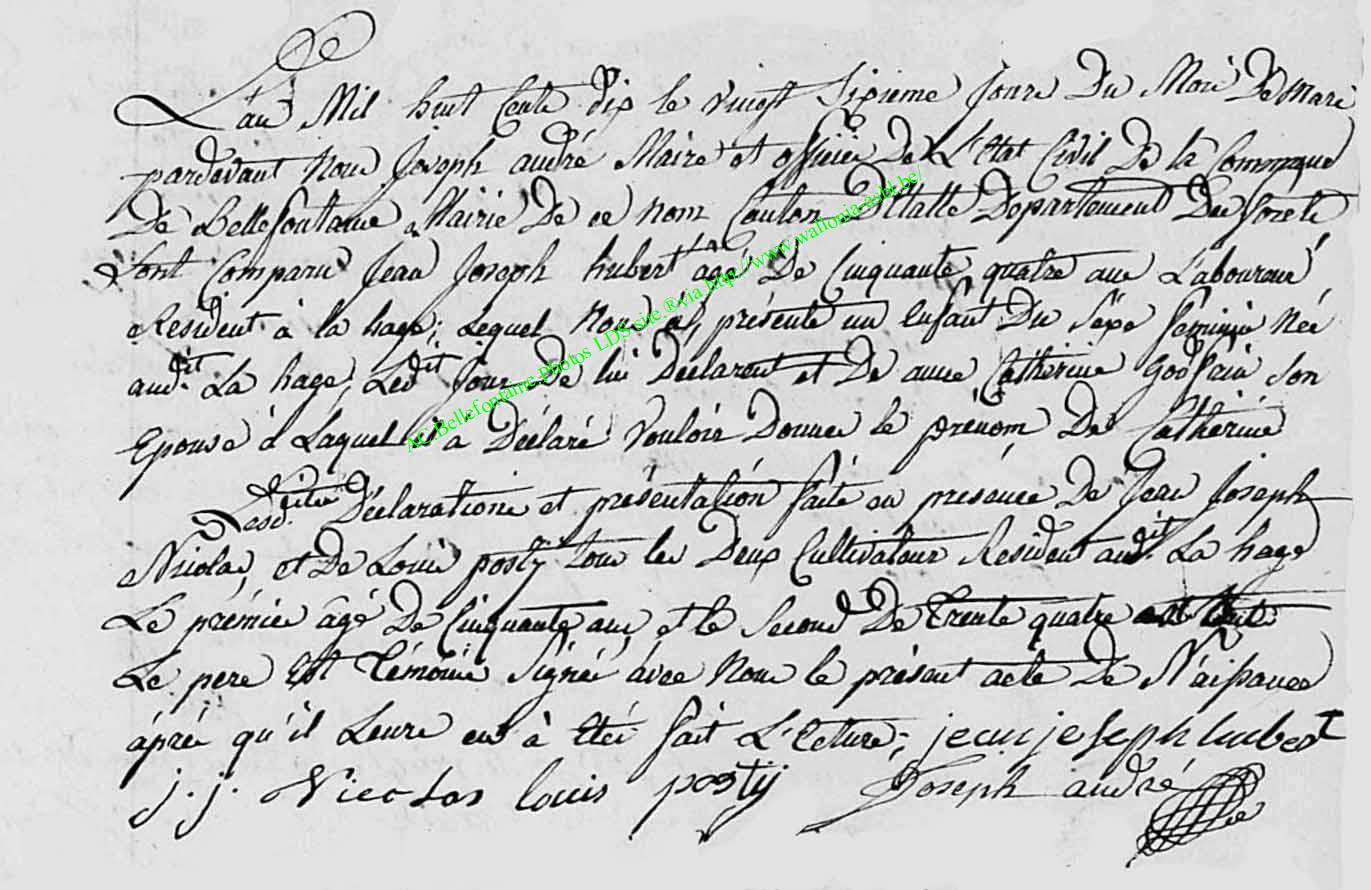 De
L'an Mil huit Cents dix le vingt Sixieme Jour Du Moi De Mars
pardevant Nous Joseph andré Maire et officier De L'Etat Civil De la Commune
De Bellefontaine Mairie De ce nom Canton D'Etalle Departement Des forets
sont Comparu Jean Joseph hubert agé De Cinquante quatre ans Laboureur
Resident à la hage; Lequel Nous à présenté un enfant Du Séxe feminin Née
aud.it La hage, Ledit Jour De lui Déclarant et De anne Catherine Godfrin Son
Epouse à Laquel il a Déclaré Vouloir Donner le prénom De Catherine
Lesd.ites Déclarations et présentation faite en présence De Jean Joseph
Nicolas, et De Louis posty tous les Deux Cultivateur Resident aud.it La hage
Le prémier âgé De Cinquante ans et le Second De Trente quatre
Le pere Et Témoins Signés avec Nous le présent acte De Naissance
áprés qu'il Leurs en à été fait L'Ecture; jean joseph hubert
j. j. Nicolas louis postij Joseph andré
AC.Bellefontaine-Photos LDS site ®via http://www.wallonia-asbl.be/